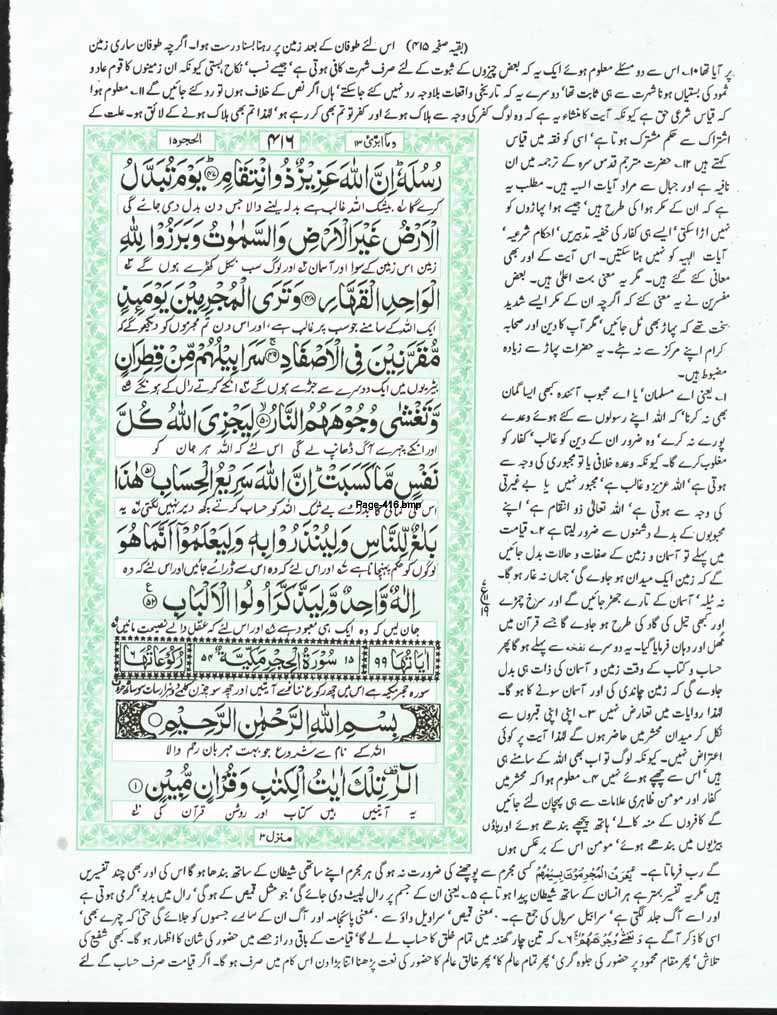 (بقیہ صفحہ ۴۱۵) اس لئے طوفان کے بعد زمین پر رہنا بسنا درست ہوا۔ اگرچہ طوفان ساری زمین
پر آیا تھا ۱۰۔ اس سے دو مسئلے معلوم ہوئے ایک یہ کہ بعض چیزوں کے ثبوت کے لئے صرف شہرت کافی ہوتی ہے' جیسے نسب' نکاح ہستی کیونکہ ان زمینوں کا قوم عاد و
ثمود کی بستیاں ہونا شہرت سے ہی ثابت تھا' دوسرے یہ کہ تاریخی واقعات بلاوجہ رد نہیں کئے جا سکتے' ہاں اگر نص کے خلاف ہوں تو رد کئے جائیں گے ۱۱۔ معلوم ہوا
کہ قیاس شرعی حق ہے کیونکہ آیت کا منشاء یہ ہے کہ وہ لوگ کفر کی وجہ سے ہلاک ہوئے اور کفر تو تم بھی کر رہے ہو' لہٰذا تم بھی ہلاک ہونے کے لائق ہو۔ علت کے
اشتراک سے حکم مشترک ہوتا ہے' اسی کو فقہ میں قیاس
کہتے ہیں ۱۲۔ حضرت مترجم قدس سرہ کے ترجمہ میں ان
نافیہ ہے اور جبال سے مراد آیات الہیہ ہیں۔ مطلب یہ
ہے کہ ان کے مکر ہوا کی طرح ہیں' جیسے ہوا پہاڑوں کو
نہیں اڑا سکتی' ایسے ہی کفار کی خفیہ تدبیریں' احکام شرعیہ'
آیات الہیہ کو نہیں ہٹا سکتیں۔ اس آیت کے اور بھی
معانی کئے گئے ہیں۔ مگر یہ معنی بہت اعلیٰ ہیں۔ بعض
مفسرین نے یہ معنی کئے کہ اگرچہ ان کے مکر ایسے شدید
سخت تھے کہ پہاڑ بھی ٹل جائیں' مگر آپ کا دین اور صحابہ
کرام اپنے مرکز سے نہ ہٹے۔ یہ حضرات پہاڑ سے زیادہ
مضبوط ہیں۔
۱۔ یعنی اے مسلمان' یا اے محبوب آئندہ کبھی ایسا گمان
بھی نہ کرنا' کہ اللہ اپنے رسولوں سے کئے ہوئے وعدے
پورے نہ کرے' وہ ضرور ان کے دین کو غالب' کفار کو
مغلوب کرے گا۔ کیونکہ وعدہ خلافی یا تو مجبوری کی وجہ سے
ہوتی ہے' اللہ عزیز و غالب ہے' مجبور نہیں یا بے غیرتی
کی وجہ سے ہوتی ہے' اللہ تعالیٰ ذو انتقام ہے' اپنے
محبوبوں کے بدلے دشمنوں سے ضرور لیتا ہے ۲۔ قیامت
میں پہلے تو آسمان و زمین کے صفات و حالات بدل جائیں
گے کہ زمین ایک میدان ہو جاوے گی' جہاں نہ غار ہو گا۔
نہ ٹیلہ' آسمان کے تارے جھڑ جائیں گے اور سرخ چمڑے
اور کبھی تیل کی گاد کی طرح ہو جاوے گا جسے قرآن میں
مُھل اور دہان فرمایا گیا۔ یہ دوسرے نفخہ سے پہلے ہو گا پھر
حساب و کتاب کے وقت زمین و آسمان کی ذات ہی بدل
جاوے گی کہ زمین چاندی کی اور آسمان سونے کا ہو گا۔
لہٰذا روایات میں تعارض نہیں ۳۔ اپنی اپنی قبروں سے
نکل کر میدان محشر میں حاضر ہوں گے لہٰذا آیت پر کوئی
اعتراض نہیں۔ کیونکہ لوگ تو اب بھی اللہ کے سامنے ہی
ہیں' اس سے چھپے ہوئے نہیں ۴۔ معلوم ہوا کہ محشر میں
کفار اور مومن ظاہری علامات سے ہی پہچان لئے جائیں
گے کافروں کے منہ کالے' ہاتھ پیچھے بندھے ہوئے اور پاؤں
بیڑیوں میں بندھے ہوئے' مومن اس کے برعکس ہوں
وما ابرئ ۱۳
۴۱۶
الحجر ۱۵
رُسُلَهٗ ؕ اِنَّ اللّٰهَ عَزِیْزٌ ذُو انْتِقَامٍ ﴿۴۷﴾ یَوْمَ تُبَدَّلُ
کرے گا بیشک اللہ غالب ہے بدلہ لینے والا جس دن بدل دی جائے گی
الْاَرْضُ غَیْرَ الْاَرْضِ وَالسَّمٰوٰتُ وَبَرَزُوْا لِلّٰهِ
زمین اس زمین کے سوا اور آسمان اور لوگ سب نکل کھڑے ہوں گے
الْوَاحِدِ الْقَهَّارِ ﴿۴۸﴾ وَتَرَى الْمُجْرِمِیْنَ یَوْمَىِٕذٍ
ایک اللہ کے سامنے جو سب پر غالب ہے، اور اس دن تم مجرموں کو دیکھو گے کہ
مُّقَرَّنِیْنَ فِی الْاَصْفَادِ ﴿۴۹﴾ سَرَابِیْلُهُمْ مِّنْ قَطِرَانٍ
بیڑیوں میں ایک دوسرے سے جڑے ہوں گے انکے کرتے رال کے ہونگے
وَّتَغْشٰى وُجُوْهَهُمُ النَّارُ ﴿۵۰﴾ لِیَجْزِیَ اللّٰهُ كُلَّ
اور انکے چہرے آگ ڈھانپ لے گی اس لئے کہ اللہ ہر جان کو
نَفْسٍ مَّا كَسَبَتْ ؕ اِنَّ اللّٰهَ سَرِیْعُ الْحِسَابِ ﴿۵۱﴾ هٰذَا
اس کی کمائی کا بدلہ دے بے شک اللہ کو حساب کرتے کچھ دیر نہیں لگتی یہ
Page-416.bmp
بَلٰغٌ لِّلنَّاسِ وَلِیُنْذَرُوْا بِهٖ وَلِیَعْلَمُوْۤا اَنَّمَا هُوَ
لوگوں کو حکم پہنچانا ہے اور اس لئے کہ وہ اس سے ڈرائے جائیں اور اس لئے کہ وہ
اِلٰهٌ وَّاحِدٌ وَّلِیَذَّكَّرَ اُولُوا الْاَلْبَابِ ﴿۵۲﴾
جان لیں کہ وہ ایک ہی معبود ہے اور اس لئے کہ عقل والے نصیحت مانیں
اٰیَاتُهَا ۹۹ ۱۵ سُوْرَةُ الْحِجْرِ مَكِّیَّةٌ ۵۴ رُكُوْعَاتُهَا ۶
سورہ حجر مکیہ ہے اس میں چھ رکوع ننانوے آیتیں اور چھ سو چون کلمے دو ہزار سات سو ساٹھ حرف
بِسْمِ اللّٰهِ الرَّحْمٰنِ الرَّحِیْمِ
اللہ کے نام سے شروع جو بہت مہربان رحم والا
الٓرٰ تِلْكَ اٰیٰتُ الْكِتٰبِ وَقُرْاٰنٍ مُّبِیْنٍ ﴿۱﴾
یہ آیتیں ہیں کتاب اور روشن قرآن کی
منزل ۳
گے رب فرماتا ہے۔ یُعْرَفُ الْمُجْرِمُوْنَ بِسِیْمٰهُمْ کسی مجرم سے پوچھنے کی ضرورت نہ ہو گی ہر مجرم اپنے ساتھی شیطان کے ساتھ بندھا ہو گا اس کی اور بھی چند تفسیریں
ہیں مگر یہ تفسیر بہتر ہے ہر انسان کے ساتھ شیطان پیدا ہوتا ہے ۵۔ یعنی ان کے جسم پر رال لپیٹ دی جائے گی' جو مثل قمیض کے ہو گی' رال میں بدبو' گرمی ہوتی ہے
اور اسے آگ جلد لگتی ہے' سرابیل سربال کی جمع ہے۔ ۔ معنی قمیص' سراویل واؤ سے ۔ معنی پائجامہ اور آگ ان کے سارے جسموں کو جلائے گی حتیٰ کہ چہرے بھی'
اسی کا ذکر آگے ہے وَتَغْشٰی وُجُوْهَهُمُ ۶۔ کہ تین چار گھنٹہ میں تمام خلق کا حساب لے لے گا' قیامت کے باقی دراز حصے میں حضور کی شان کا اظہار ہو گا۔ کبھی شفیع کی
تلاش' پھر مقام محمود پر حضور کی جلوہ گری' پھر تمام عالم کا' پھر خالق عالم کا حضور کی نعت پڑھنا اتنا بڑا دن اس کام میں صرف ہو گا۔ اگر قیامت صرف حساب کے لئے